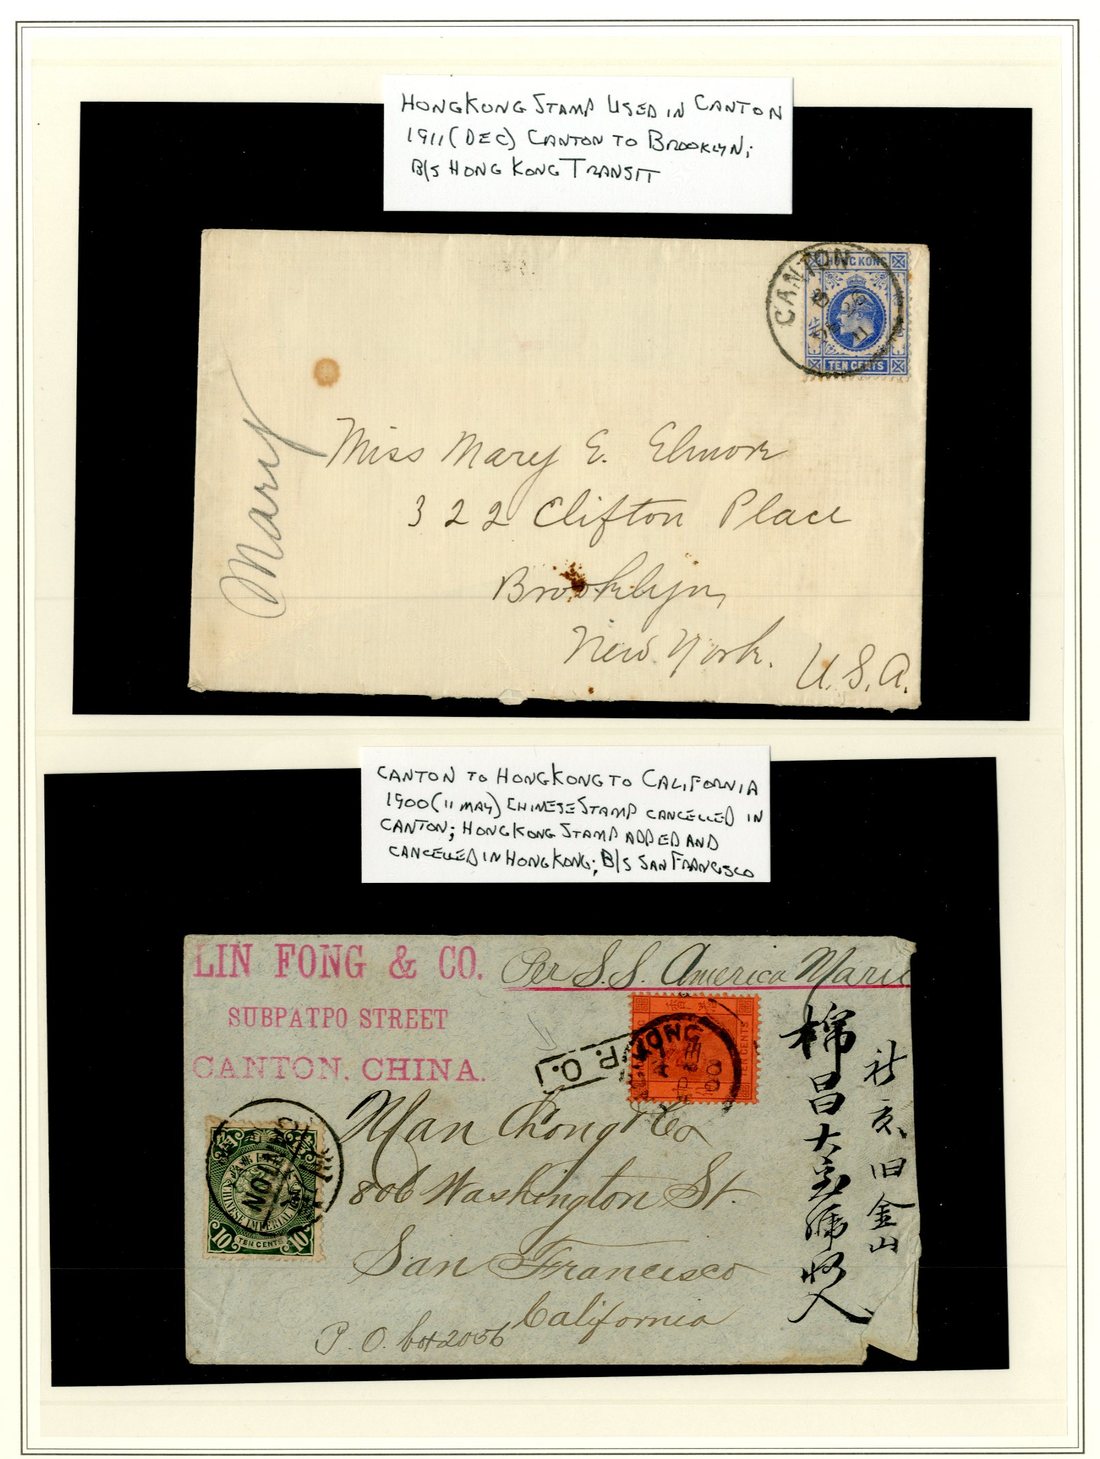 HONGKONG STAMP USED IN CANTON
1911 (DEC) CANTON TO BROOKLYN;
B/S HONG KONG TRANSIT
CANTON
HONG KONG
11
TEN CENTS
Mary
Miss Mary E. Elmore
322 Clifton Place
Brooklyn,
New York.
U.S.A.
CANTON TO HONGKONG TO CALIFORNIA
1900 (11 MAY) CHINESE STAMP CANCELLED IN
CANTON; HONGKONG STAMP ADDED AND
CANCELLED IN HONGKONG; B/S SAN FRANCISCO
LIN FONG & CO.
SUBPATPO STREET
CANTON, CHINA.
Per S.S. America Maru
KONG
00
TEN CENTS
I.P.O.
CANTON
CHINESE IMPERIAL
10 TEN CENTS 10
Man Chong & Co
806 Washington St.
San Francisco
California
P.O. box 2056
金山
昌大